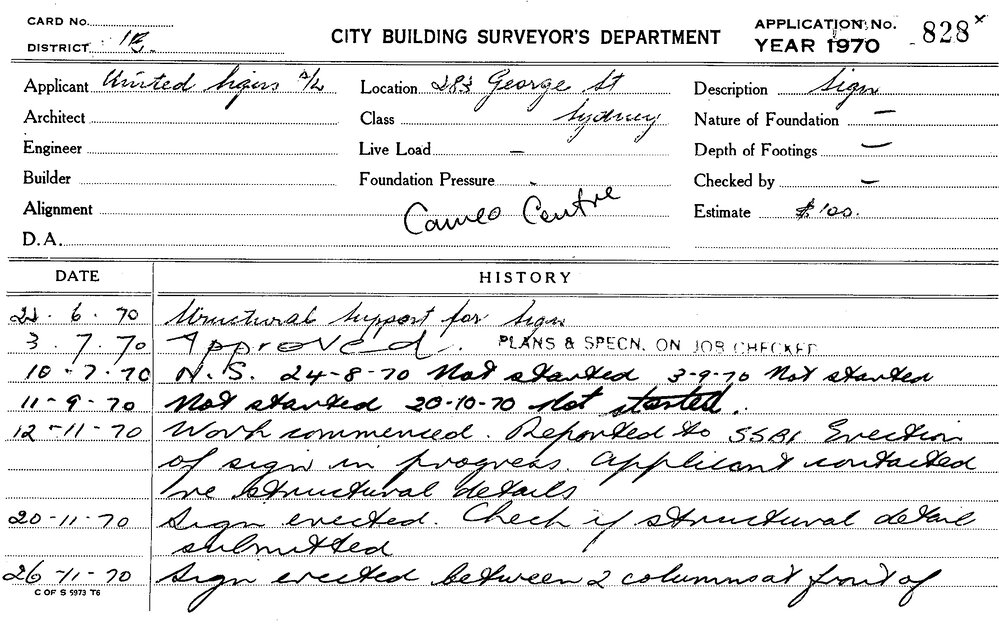 CARD No.
DISTRICT
CITY BUILDING SURVEYOR'S DEPARTMENT
APPLICATION No. 828 x
YEAR 1970
Applicant United Signs P/L Location 283 George St Description Sign
Architect Class Sydney Nature of Foundation —
Engineer Live Load — Depth of Footings —
Builder Foundation Pressure - Checked by —
Alignment Cameo Centre Estimate $100.
D.A.
DATE HISTORY
6.70 Structural Support for Sign
3.7.70 Approved. PLANS & SPECN. ON JOB CHECKED
10-7-70 N.S. 24-8-70 Not started 3-9-70 Not started
11-9-70 Not started 20-10-70 Not started.
12-11-70 Work commenced. Reported to SSBI Erection
of sign in progress. Applicant contacted
re structural details
20-11-70 Sign erected. Check if structural detail
submitted
26-11-70 Sign erected between 2 columns at front of
C OF S 5973 T6